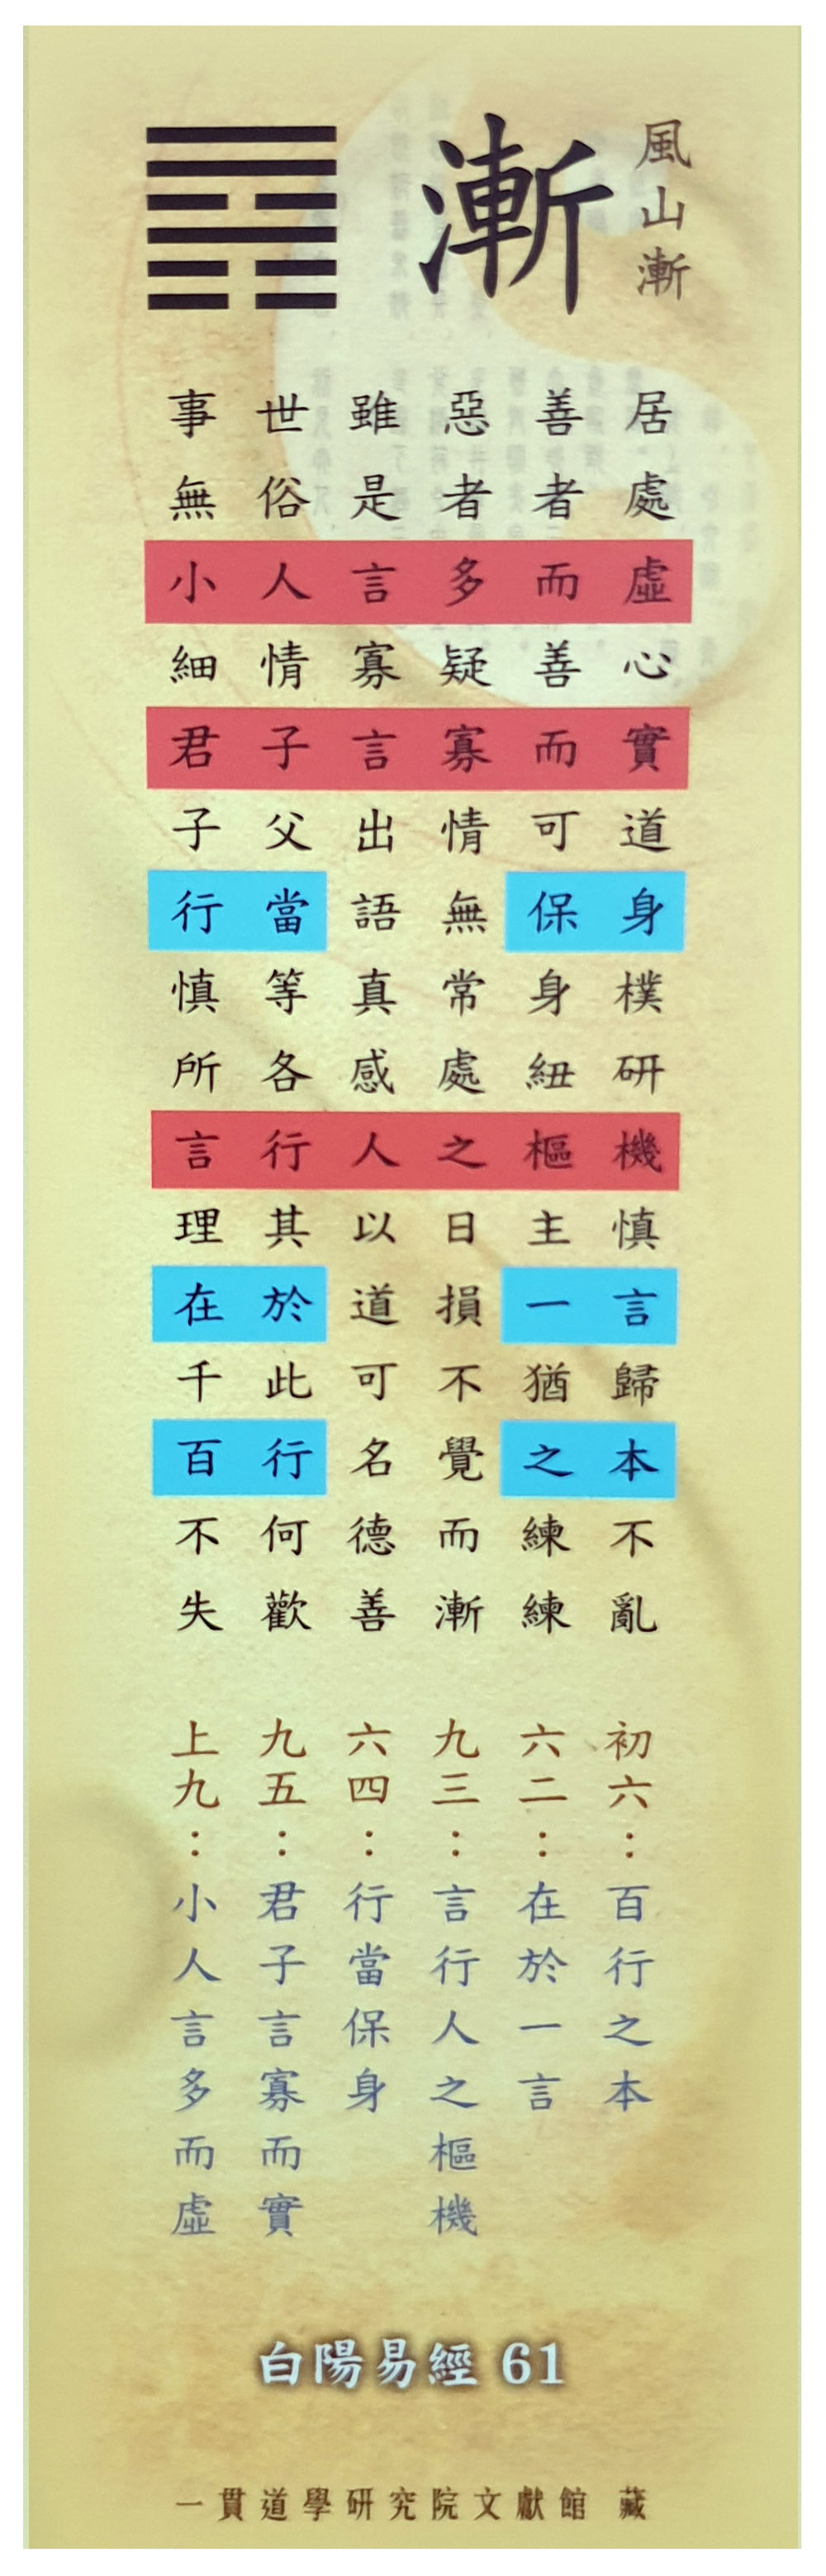 風山漸
漸
居處虛心實道身樸研機慎言歸本不亂
善者而善而可保身紐樞主一猶之練練
惡者多疑寡情無常處之日損不覺而漸
雖是言寡言出語真感人以道可名德善
世俗人情子父當等各行其於此行何歡
事無小細君子行慎所言理在千百不失
初六：百行之本
六二：在於一言
九三：言行人之樞機
六四：行當保身
九五：君子言寡而實
上九：小人言多而虛
白陽易經 61
一貫道學研究院文獻館 藏